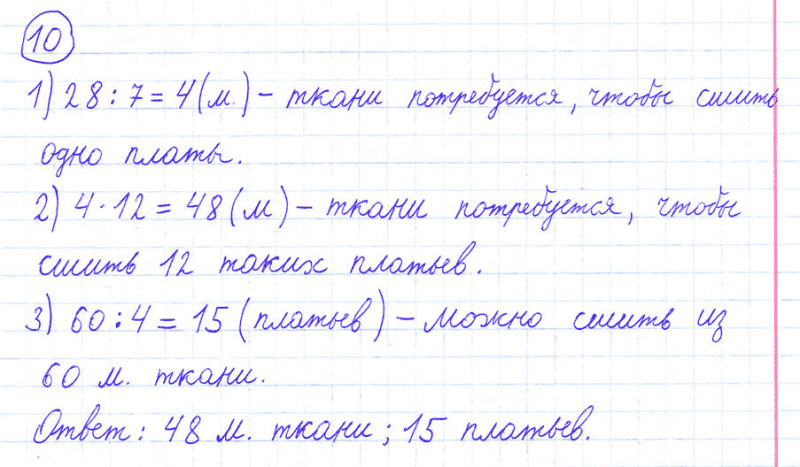 10
1) 28 : 7 = 4 (м.) – ткани потребуется, чтобы сшить
одно платы.
2) 4 · 12 = 48 (м) – ткани потребуется, чтобы
сшить 12 таких платьев.
3) 60 : 4 = 15 (платьев) – можно сшить из
60 м. ткани.
Ответ: 48 м. ткани; 15 платьев.